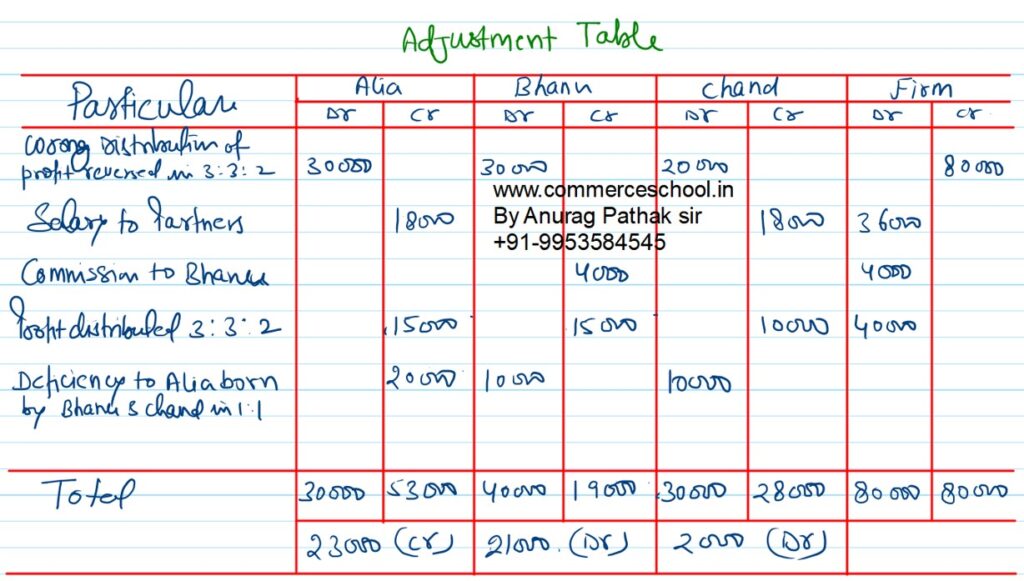 Adjustment Table
Particulars Alia Bhanu Chand Firm
Dr Cr Dr Cr Dr Cr Dr Cr
Wrong Distribution of
profit reversed in 3:3:2 30000 30000 20000 80000
www.commerceschool.in
By Anurag Pathak sir
+91-9953584545
Salary to Partners 18000 18000 36000
Commission to Bhanu 4000 4000
Profit distributed 3:3:2 15000 15000 10000 40000
Deficiency to Alia born 20000 10000 10000
by Bhanu & Chand in 1:1
Total 30000 53000 40000 19000 30000 28000 80000 80000
23000 (Cr) 21000. (Dr) 2000 (Dr)